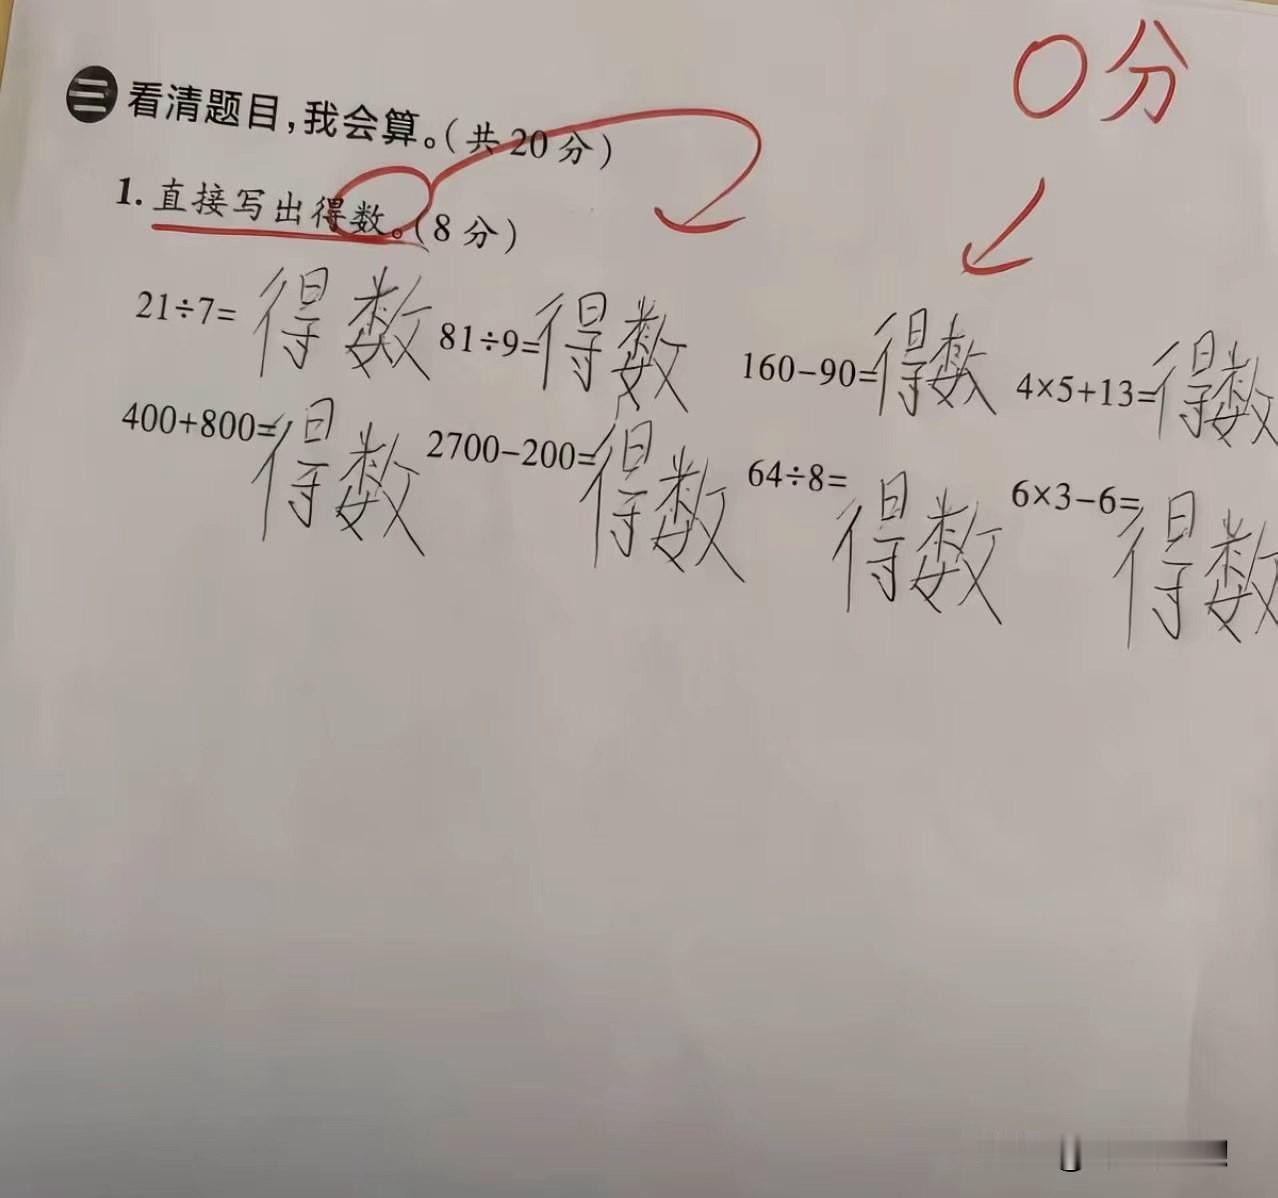 0分
三 看清题目，我会算。（共20分）
1. 直接写出得数。（8分）
21÷7= 得数 81÷9=得数 160−90=得数 4×5+13=得数
400+800=得数 2700−200=得数 64÷8=得数 6×3−6=得数